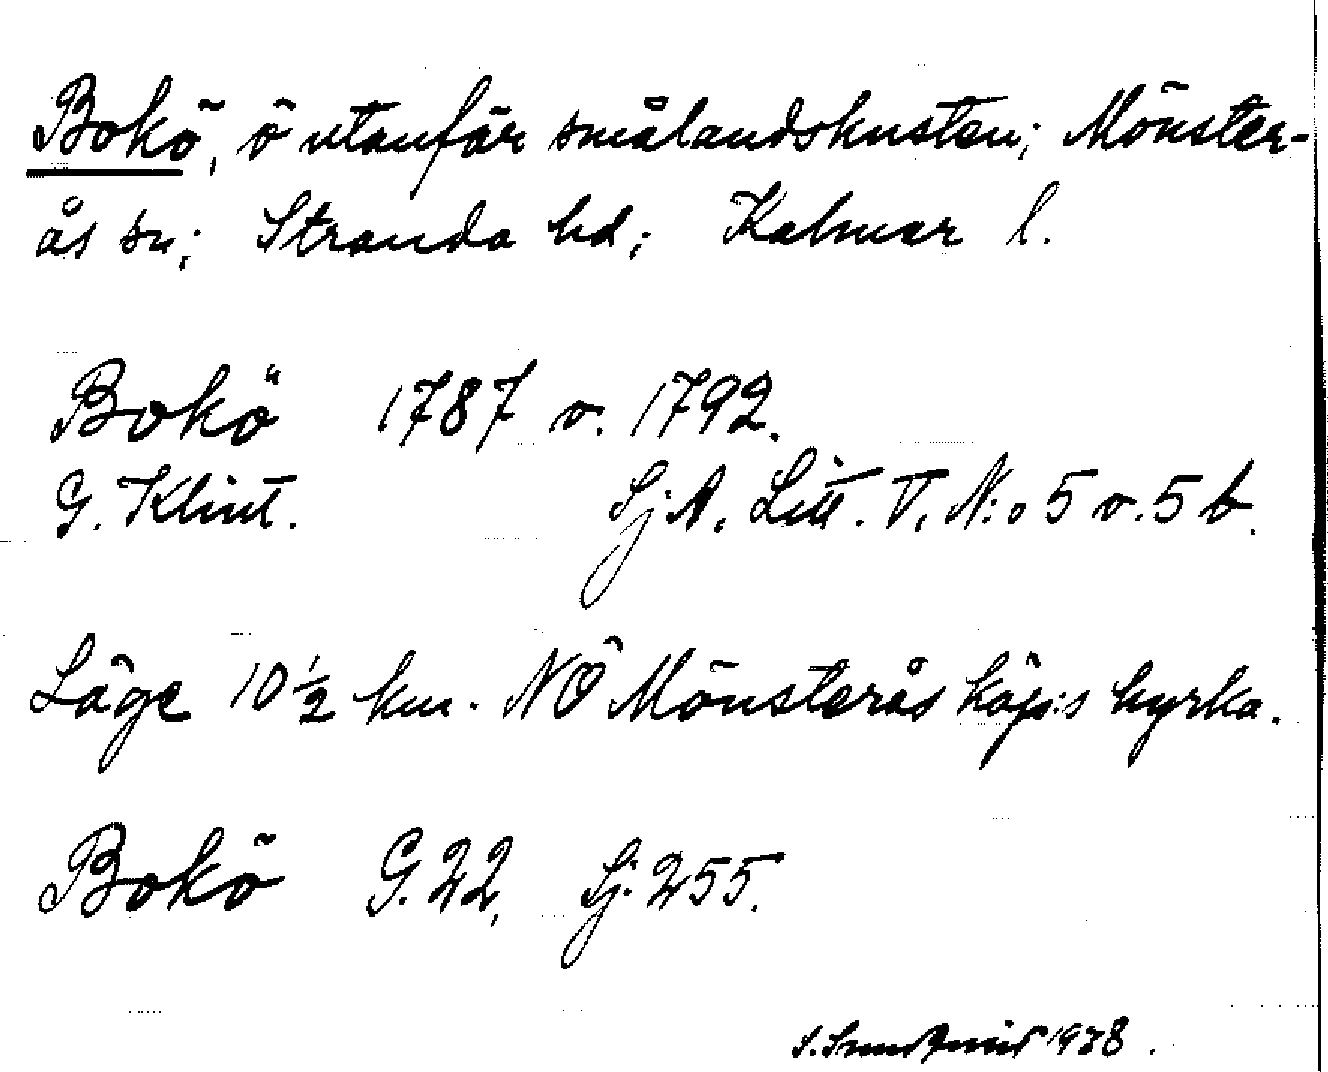 Bokö, ö utanför smålandskusten; Mönster-
ås sn; Stranda hd; Kalmar l.
Bokö 1787 o. 1792.
G. Klint. Sj.A. Litt. T. N:o 5 o. 5 b.
Läge 10 1/2 km. NÖ Mönsterås köp:s kyrka.
Bokö G. 22, Sj. 255.
1938.